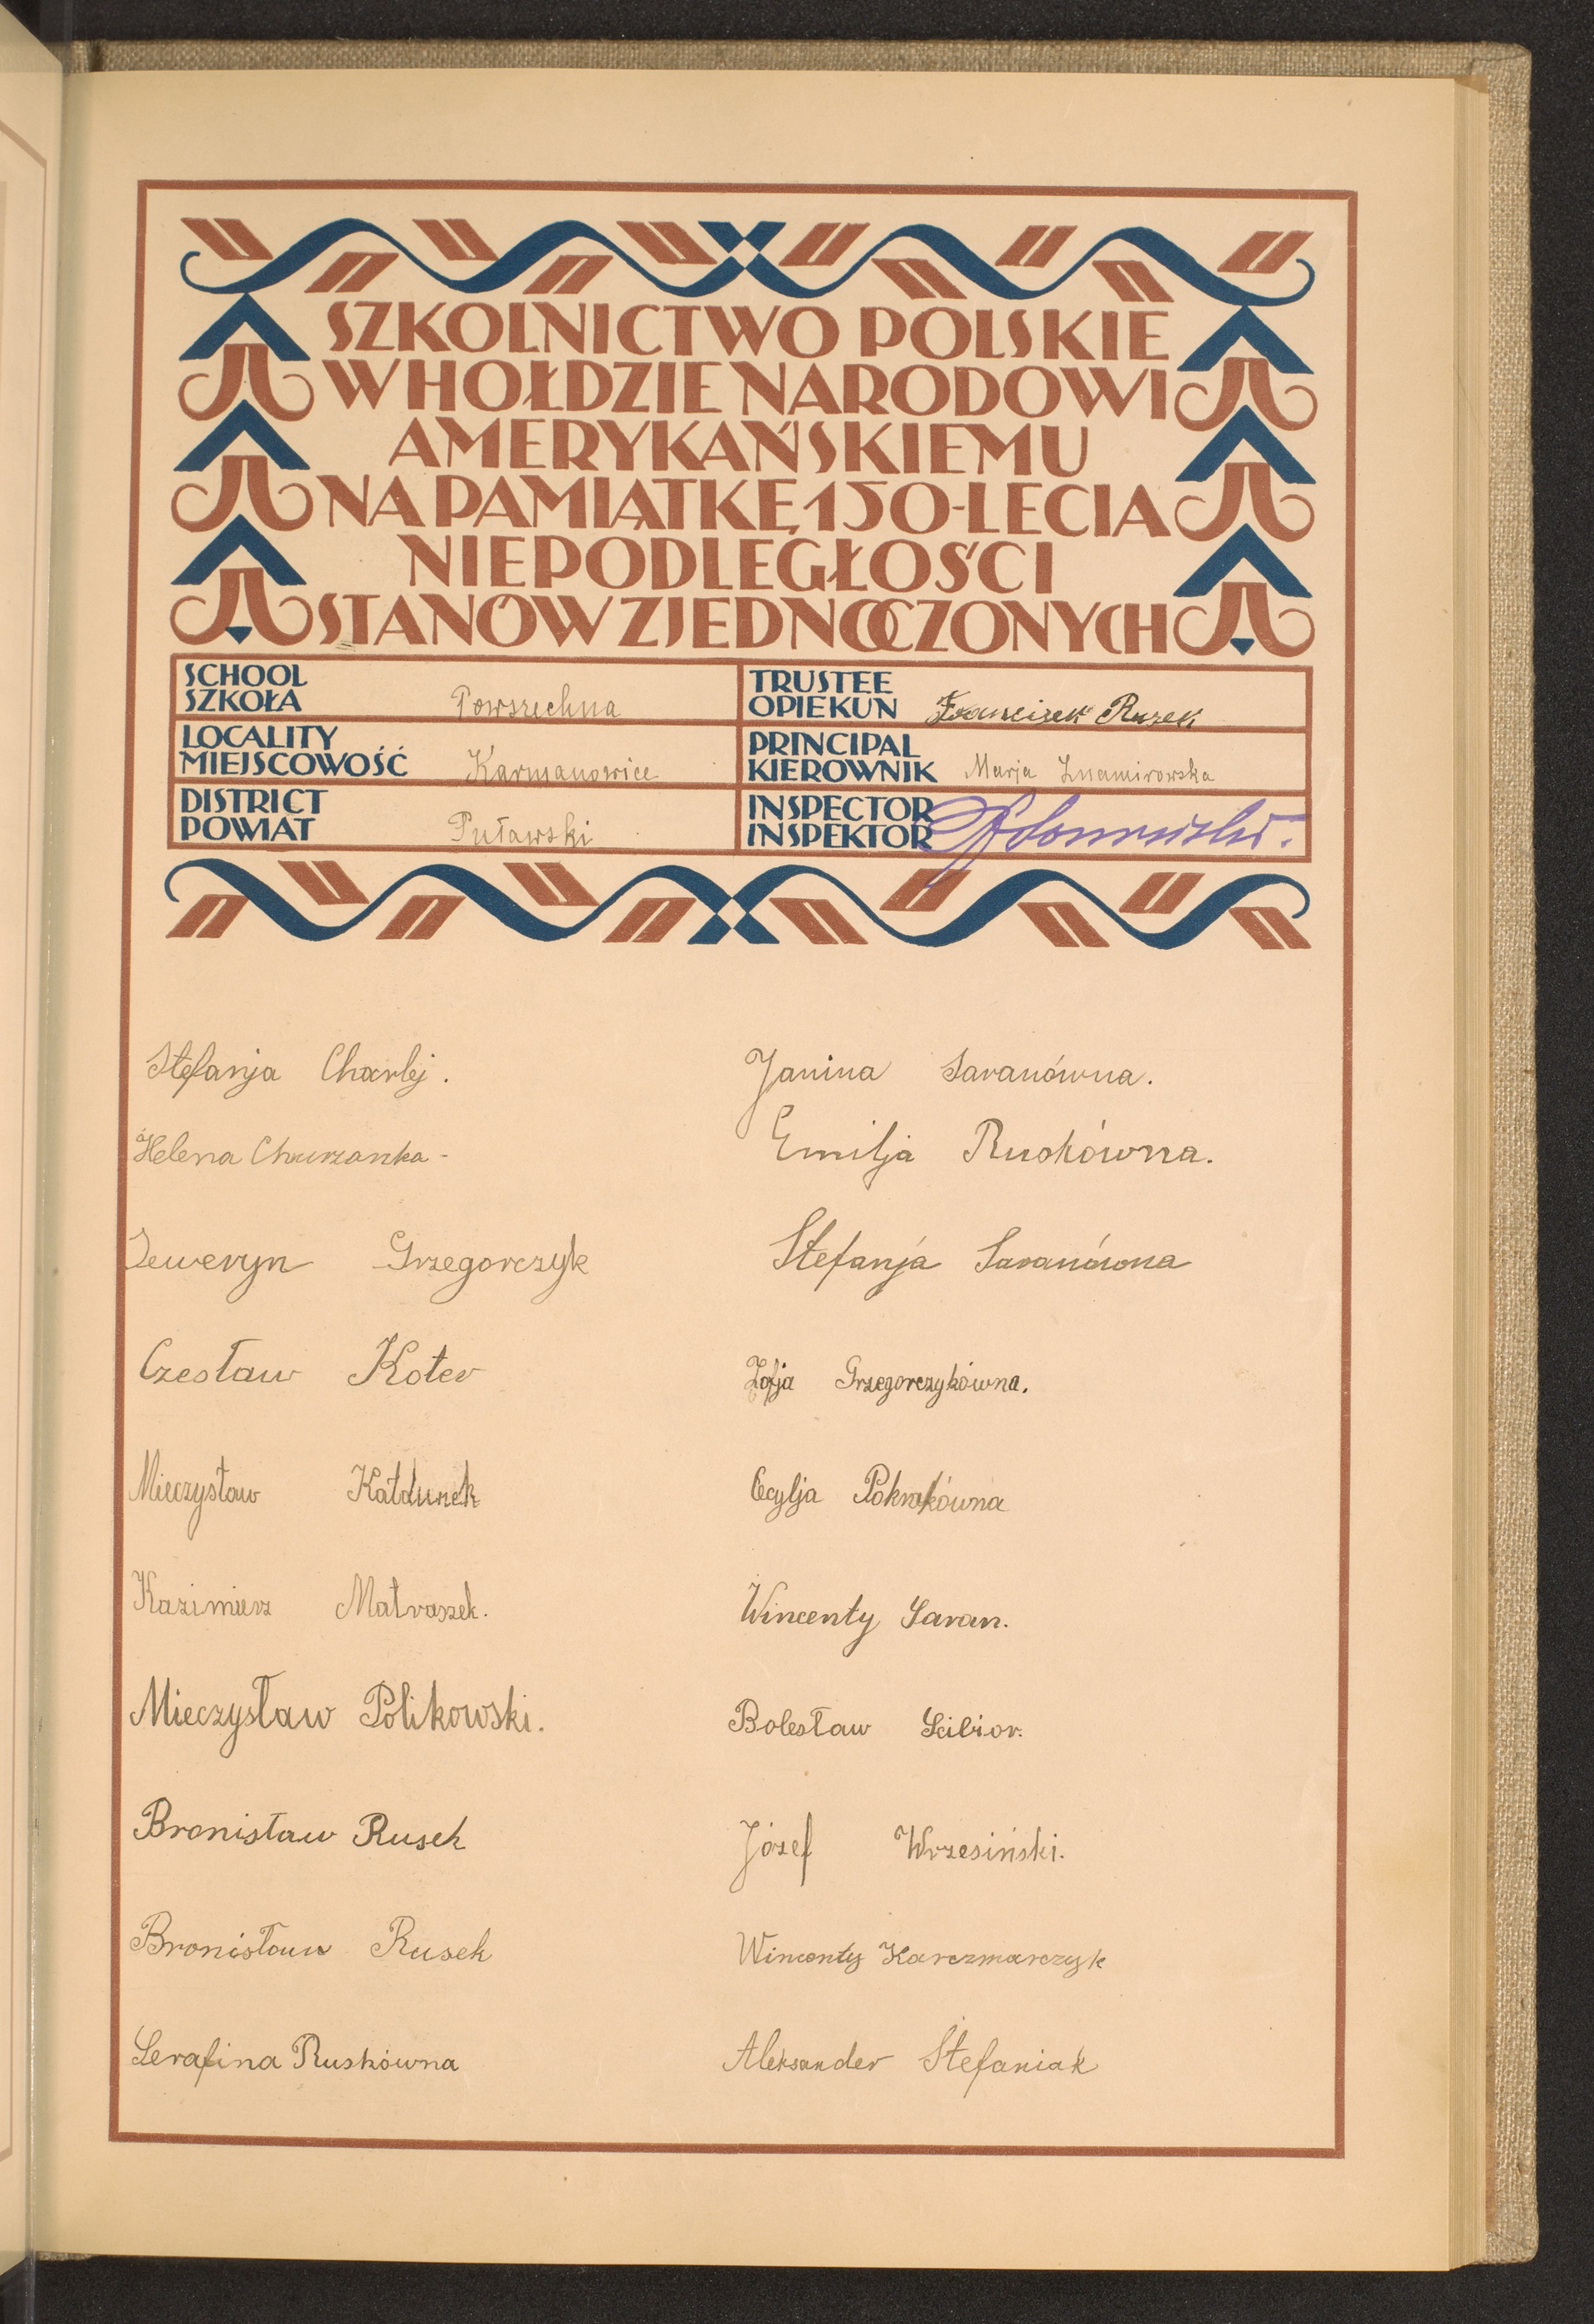 SZKOLNICTWO POLSKIE
W HOŁDZIE NARODOWI
AMERYKAŃSKIEMU
NA PAMIĄTKĘ 150-LECIA
NIEPODLEGŁOŚCI
STANÓW ZJEDNOCZONYCH
SCHOOL
SZKOŁA Powszechna
TRUSTEE
OPIEKUN Franciszek Rusek
LOCALITY
MIEJSCOWOŚĆ Karmanowice
PRINCIPAL
KIEROWNIK Marja Znamirowska
DISTRICT
POWIAT Puławski
INSPECTOR
INSPEKTOR
Stefanja Charlej.
Helena Churzanka -
Seweryn Grzegorczyk
Czesław Koter
Mieczysław Kałdunek
Kazimierz Matraszek.
Mieczysław Polikowski.
Bronisław Rusek
Bronisław Rusek
Serafina Ruskówna
Janina Saranówna.
Emilja Ruskówna.
Stefanja Saranówna
Zofja Grzegorczykówna.
Cecylja Pokrakówna
Wincenty Saran.
Bolesław Scibior.
Józef Wrzesiński.
Wincenty Karczmarczyk
Aleksander Stefaniak